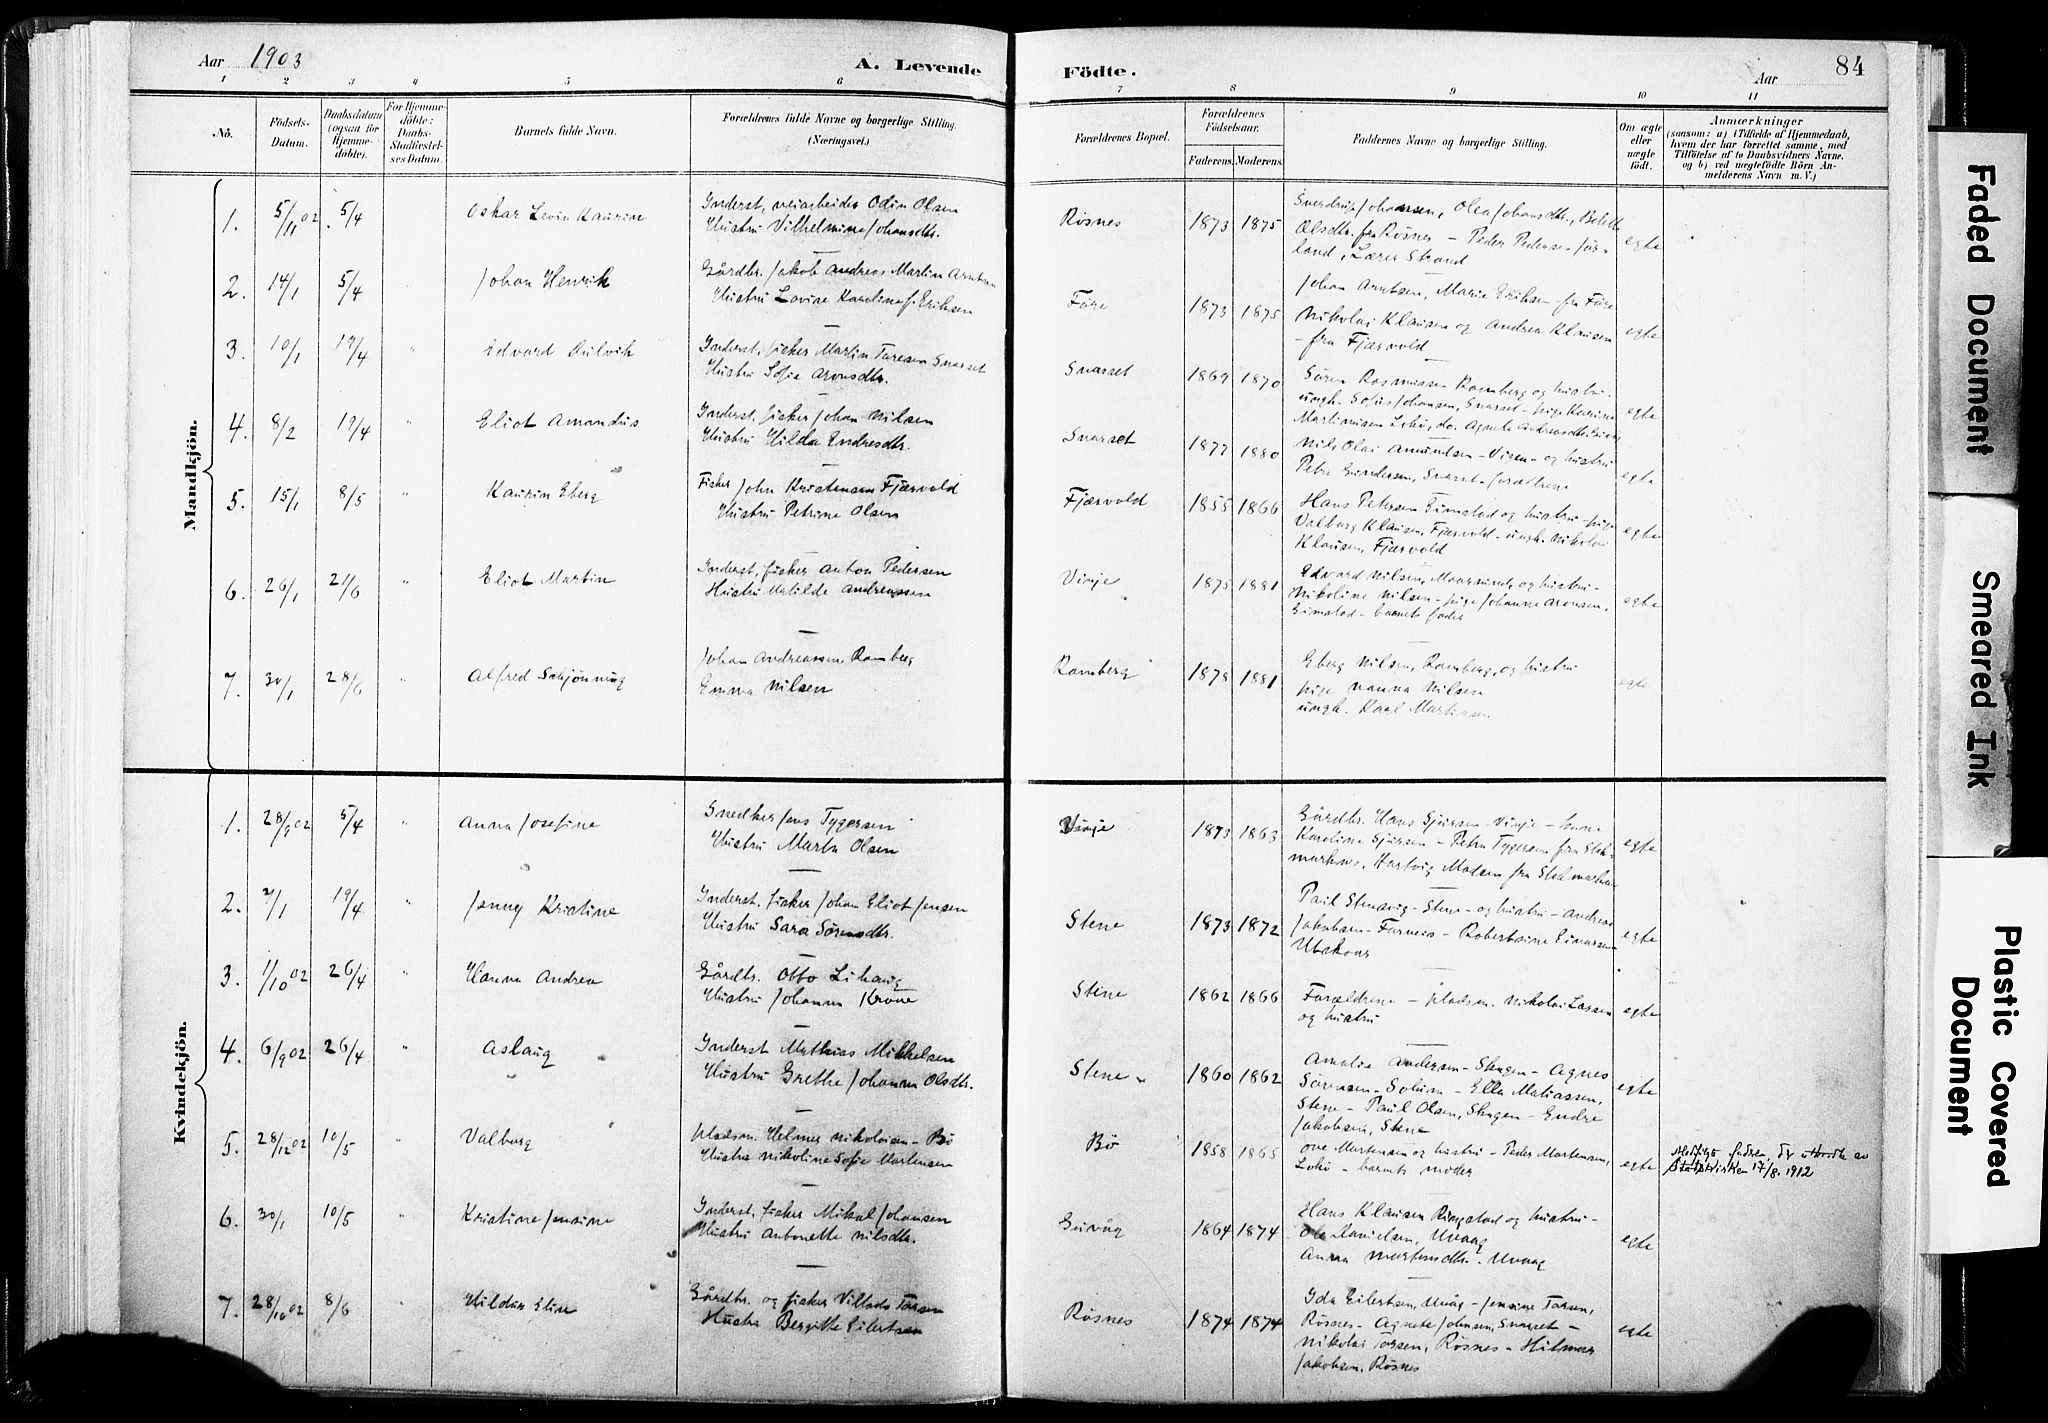 Aar 1903
A. Levende
Födte.
Aar
84
1 2 3 4 5 6 7 8 9 10 11
No.
Födsels-
Datum.
Daabsdatum
(ogsaa for
Hjemme-
döbte).
For Hjemme-
döbte:
Daabs-
Stadfæstel-
ses Datum.
Barnets fulde Navn.
Forældrenes fulde Navne og borgerlige Stilling.
(Næringsvei.)
Forældrenes Bopæl.
Forældrenes
Födselsaar.
Faderens. Moderens.
Faddernes Navne og borgerlige Stilling.
Om ægte
eller
uægte
födt.
Anmærkninger
(saasom: a) i Tilfælde af Hjemmedaab,
hvem der har forrettet samme, med
Tilföielse af to Daabsvidners Navne.
og b) ved uægtefödte Börn An-
melderens Navn m. V.)
Mandkjön.
1. 5/11 02 5/4 Oskar Levin Kaurin
Inderst, veiarbeider Odin Olsen
Hustru Vilhelmine Johansdtr.
Røsnes 1873 1875
Sverdrup Johansen, Olea Johansdtr.,
Olsdtr. fra Røsnes - Peder Pederse-
land, Lærer Strand
egte
2. 14/1 5/4 " Johan Henrik
Gårdbr. Jakob Andreas Martin Arntsen
Hustru Lovise Karoline J. Eriksen
Føre 1873 1875
Johan Arntsen, Marie Eriksen - fra Føre
Nikolai Klausen og Andrea Klausen
- fra Fjærvold
egte
3. 10/1 19/4 " Edvard Aulvik
Inderst, fisker Martin Toresen Svarset
Hustru Sofie Aronsdtr.
Svarset 1869 1870
Søren Rasmussen Ramberg og hustru -
ungk. Sofus Johansen, Svarset - pige Katrine
Martinusen Lokø, do. Agnete Andreasdtr.
egte
4. 8/2 19/4 " Eliot Amandus
Inderst. fisker Johan Nilsen
Hustru Hilda Endresdtr.
Svarset 1877 1880
Nils Olai Amundsen - Visen - og hustru
Petra Gundersen, Svarset - forældrene
egte
5. 15/1 8/5 " Kaurin Eberg
Fisker John Kristensen Fjærvold
Hustru Petrine Olsen
Fjærvold 1855 1866
Hans Petersen Eimstad og hustru - pige
Valborg Klausen, Fjærvold - ungk. Nikolai
Klausen, Fjærvold
egte
6. 26/1 21/6 " Eliot Martin
Inderst, fisker Anton Pedersen
Hustru Matilde Andreassen
Vinje 1875 1881
Edvard Nilsen, og hustru -
Nikoline Nilsen - pige Johanne Aronsen,
Eimstad - barnets fader
egte
7. 30/1 28/6 " Alfred Schjönning
Johan Andreassen, Ramberg
Emma Nilsen
Ramberg 1878 1881
Eberg Nilsen, Ramberg, og hustru
pige Nanna Nilsen
ungk. Karl Martinsen
egte
Kvindekjön.
1. 28/9 02 5/4 Anna Josefine
Snedker Jens Tygersen
Hustru Marta Olsen
Vinje 1873 1863
Gårdbr. Hans Sjursen - Vinje - kone
Karoline Sjursen - Petra Tygersen fra Stok-
marknes, Hartvig Madsen fra Stokmarknes
egte
2. 2/1 19/4 " Jenny Kristine
Inderst. fisker Johan Eliot Jensen
Hustru Sara Sørensdtr.
Stene 1873 1872
Paul Stensvig - Stene - og hustru - Andreas
Jakobsen - - Robertine Einarsen
Utskoar
egte
3. 1/10 02 26/4 " Hanna Andrea
Gårdbr. Otto Lihaug
Hustru Johanna Krone
Stene 1862 1866
Forældrene - pladsm. Nikolai Larsen
og hustru
egte
4. 6/9 02 26/4 " Aslaug
Inderst Mathias Mikkelsen
Hustru Grethe Johanna Olsdtr.
Stene 1860 1862
Amalie Andersen - Skagen - Agnes
Sørensen - Solum - Ella Matiassen,
Stene - Paul Olsen, Skagen - Endre
Jakobsen, Stene
egte
5. 28/12 02 10/5 " Valborg
pladsm. Helmer Nikolaisen - Bø
Hustru Nikoline Sofie Mortensen
Bø 1858 1865
Ove Mortensen og hustru - Peder Mortensen,
Lokø - barnets moder
egte
fadren, 17/8. 1912
6. 30/1 10/5 " Kristine Jensine
Inderst. fisker Mikal Johansen
Hustru Antonette Nilsdtr.
Guvåg 1864 1874
Hans Klausen Ringstad og hustru -
Ole Danielsen, Uvaag
Anna Mortensdtr. Uvaag
egte
7. 28/10 02 8/6 " Hildur Elise
Gårdbr. og fisker Villads Torsen
Hustru Bergitte Eilertsen
Røsnes 1874 1874
Ida Eilertsen, Uvåg - Jensine Torsen,
Røsnes - Agnete Johnsen, Svarset -
Nikolai Torsen, Røsnes - Hilmar
Jakobsen, Røsnes
egte
Faded Document
Smeared Ink
Plastic Covered
Document